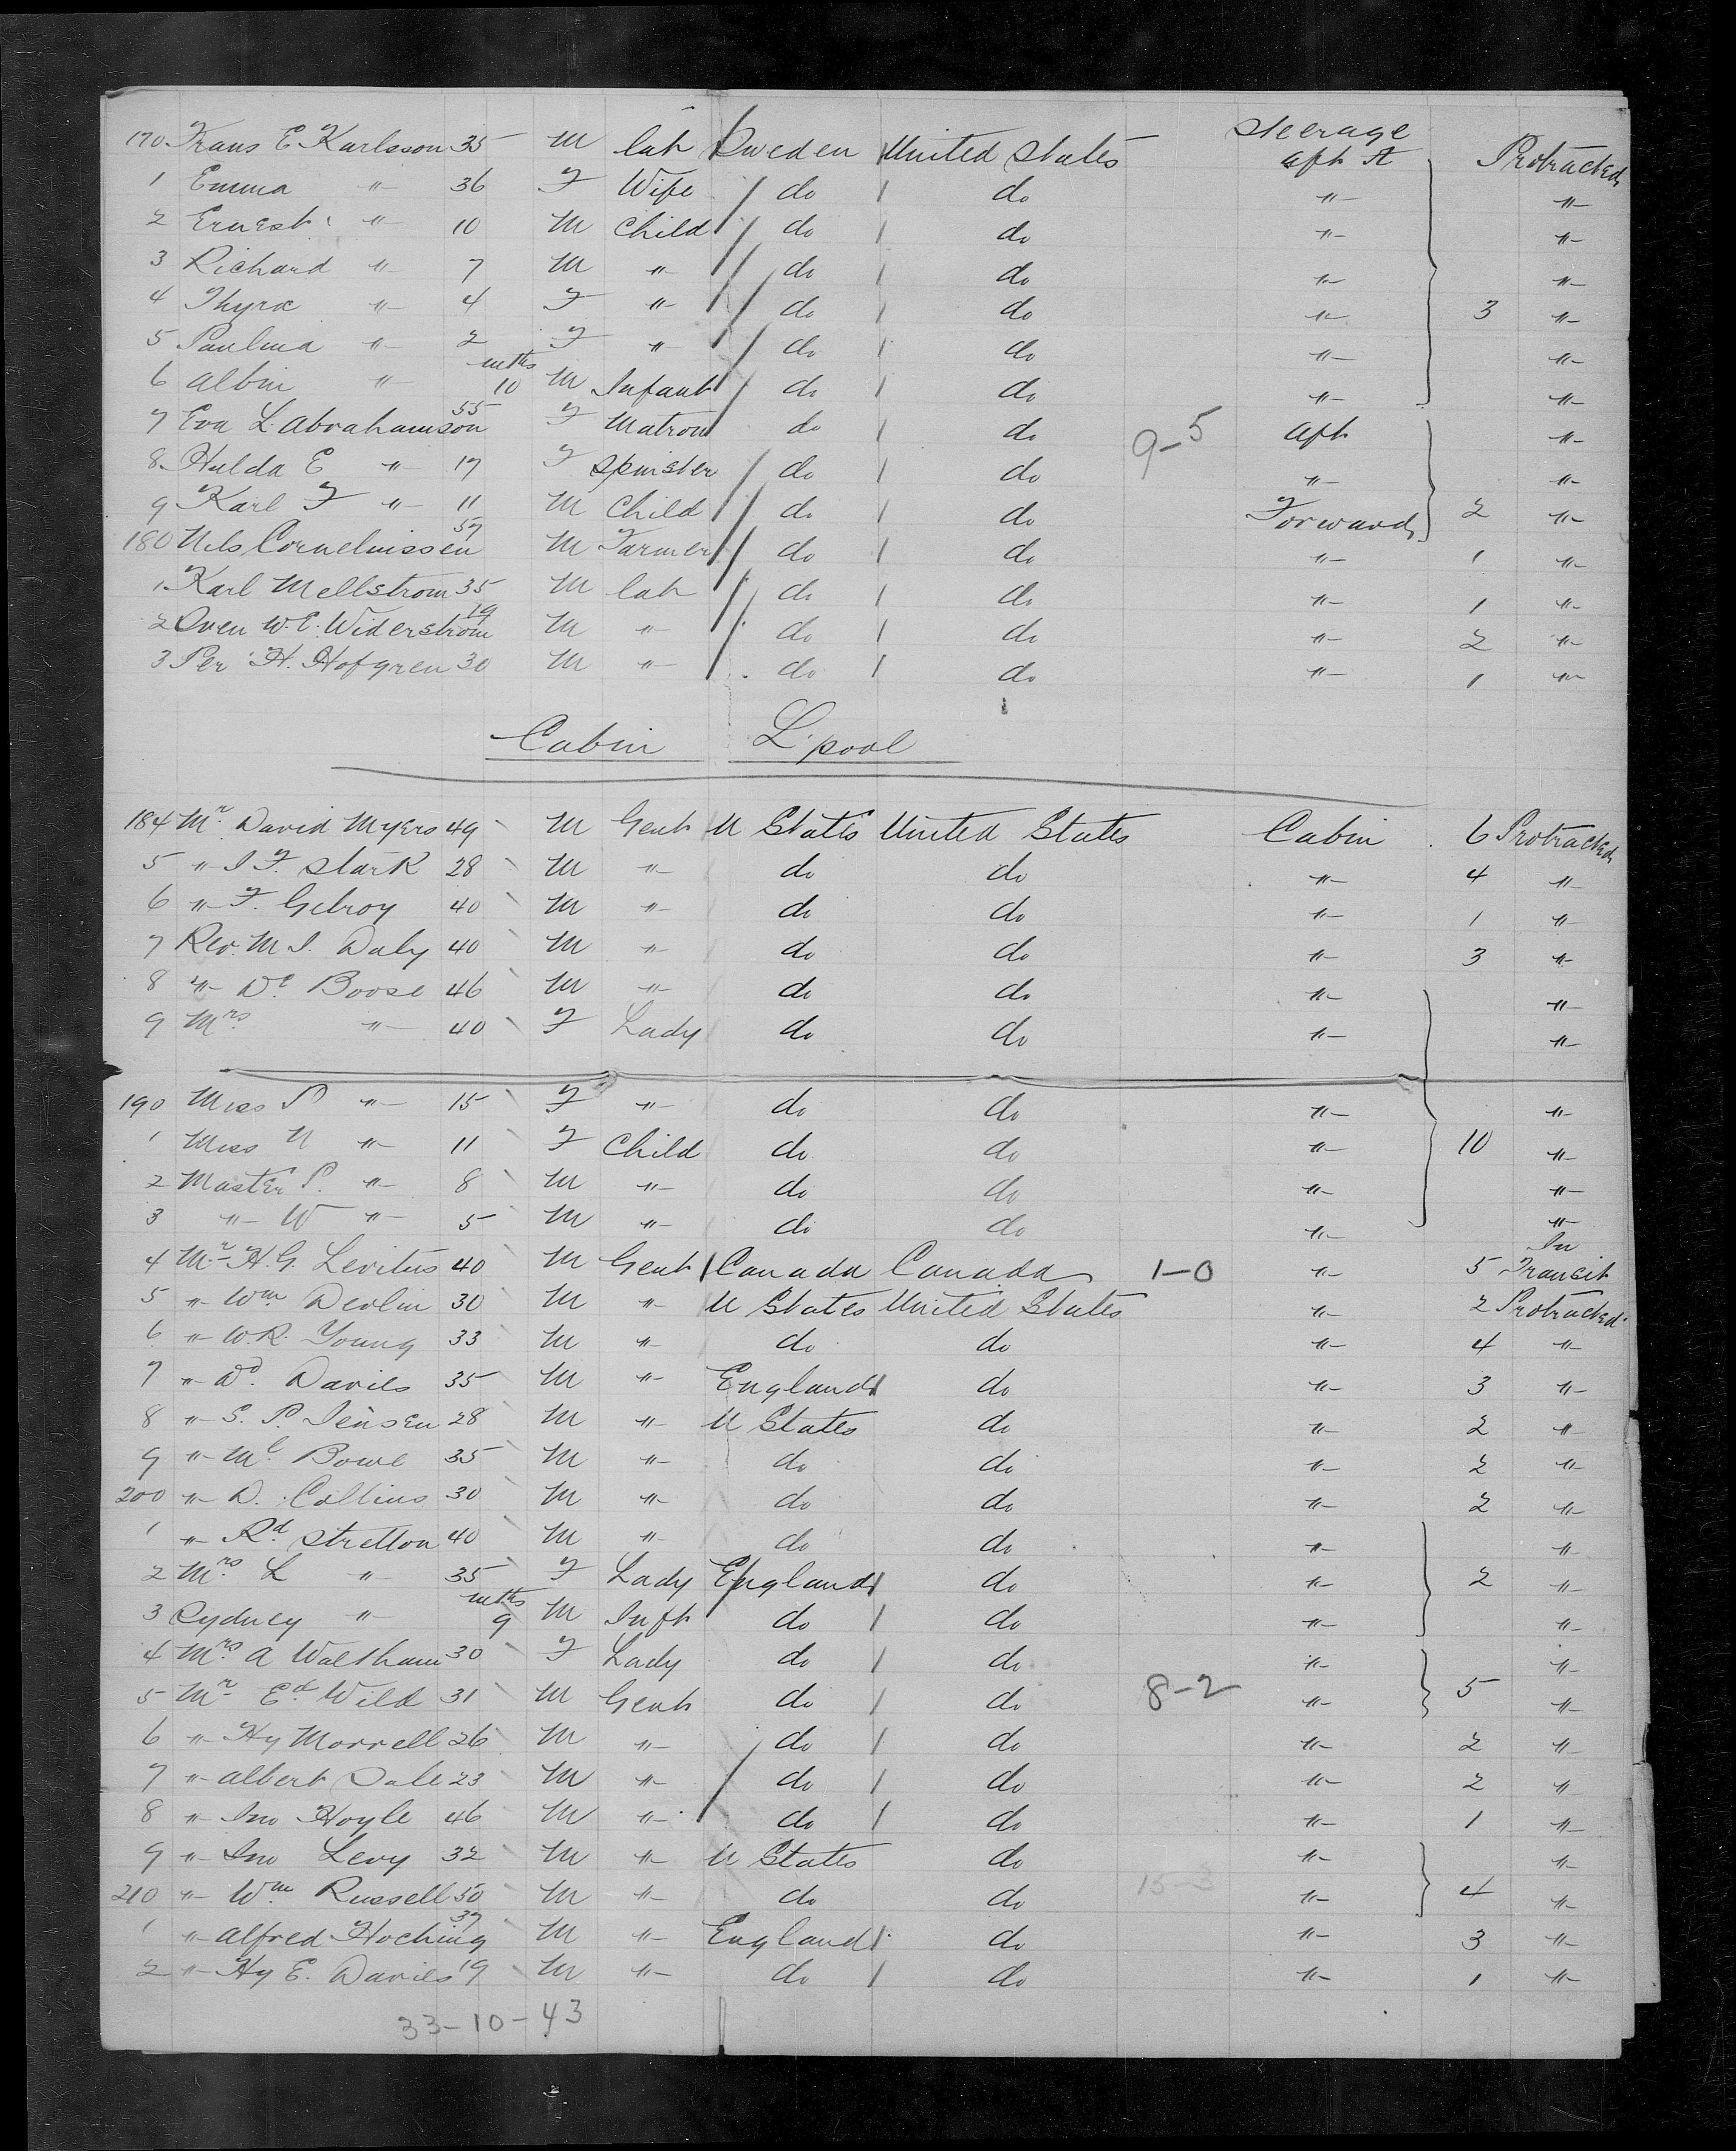 Steerage
170 Frans E Karlsson 35 M lab Sweden United States aft A Protracted
1 Emma " 36 F Wife do do " "
2 Ernest " 10 M Child do do " "
3 Richard " 7 M " do do " "
4 Thyra " 4 F " do do " 3 "
5 Paulina " 2 F " do do " "
6 Albin " mths 10 M Infant do do " "
7 Eva L. Abrahamson 55 F Matron do do 9-5 aft "
8 Hulda E " 17 F Spinster do do " "
9 Karl F " 11 M Child do do Forward 2 "
180 Nils Corneluissen 57 M Farmer do do " 1 "
1 Karl Mellstrom 35 M lab do do " 1 "
2 Sven W.E. Widerstrom 19 M " do do " 2 "
3 Per H. Hofgren 30 M " do do " 1 "
Cabin L'pool
184 Mr David Myers 49 M Gent U States United States Cabin 6 Protracted
5 " I F. Stark 28 M " do do " 4 "
6 " F. Gilroy 40 M " do do " 1 "
7 Rev. M I. Daly 40 M " do do " 3 "
8 " De Boose 46 M " do do " "
9 Mrs " 40 F Lady do do " "
190 Miss P " 15 F " do do " "
1 Miss N " 11 F Child do do " 10 "
2 Master P. " 8 M " do do " "
3 " W " 5 M " do do " "
4 Mr H.G. Levitus 40 M Gent Canada Canada 1-0 " 5 In Transit
5 " Wm Devlin 30 M " U States United States " 2 Protracted
6 " W.R. Young 33 M " do do " 4 "
7 " Dd. Davies 35 M " England do " 3 "
8 " S. P. Jensen 28 M " U States do " 2 "
9 " Ml Bowe 35 M " do do " 2 "
200 " D. Collins 30 M " do do " 2 "
1 " Rd Stretton 40 M " do do " "
2 Mrs L " 35 F Lady England do " 2 "
3 Sydney " mths 9 M Inft do do " "
4 Mrs A Waltham 30 F Lady do do " "
5 Mr Ed Wild 31 M Gent do do 8-2 " 5 "
6 " Hy Morrell 26 M " do do " 2 "
7 " Albert Dale 23 M " do do " 2 "
8 " Jno Hoyle 46 M " do do " 1 "
9 " Jno Levy 32 M " U States do " "
210 " Wm Russell 50 M " do do 15-3 " 4 "
1 " Alfred Hoching 37 M " England do " 3 "
2 " Hy E. Davies 19 M " do do " 1 "
33-10-43